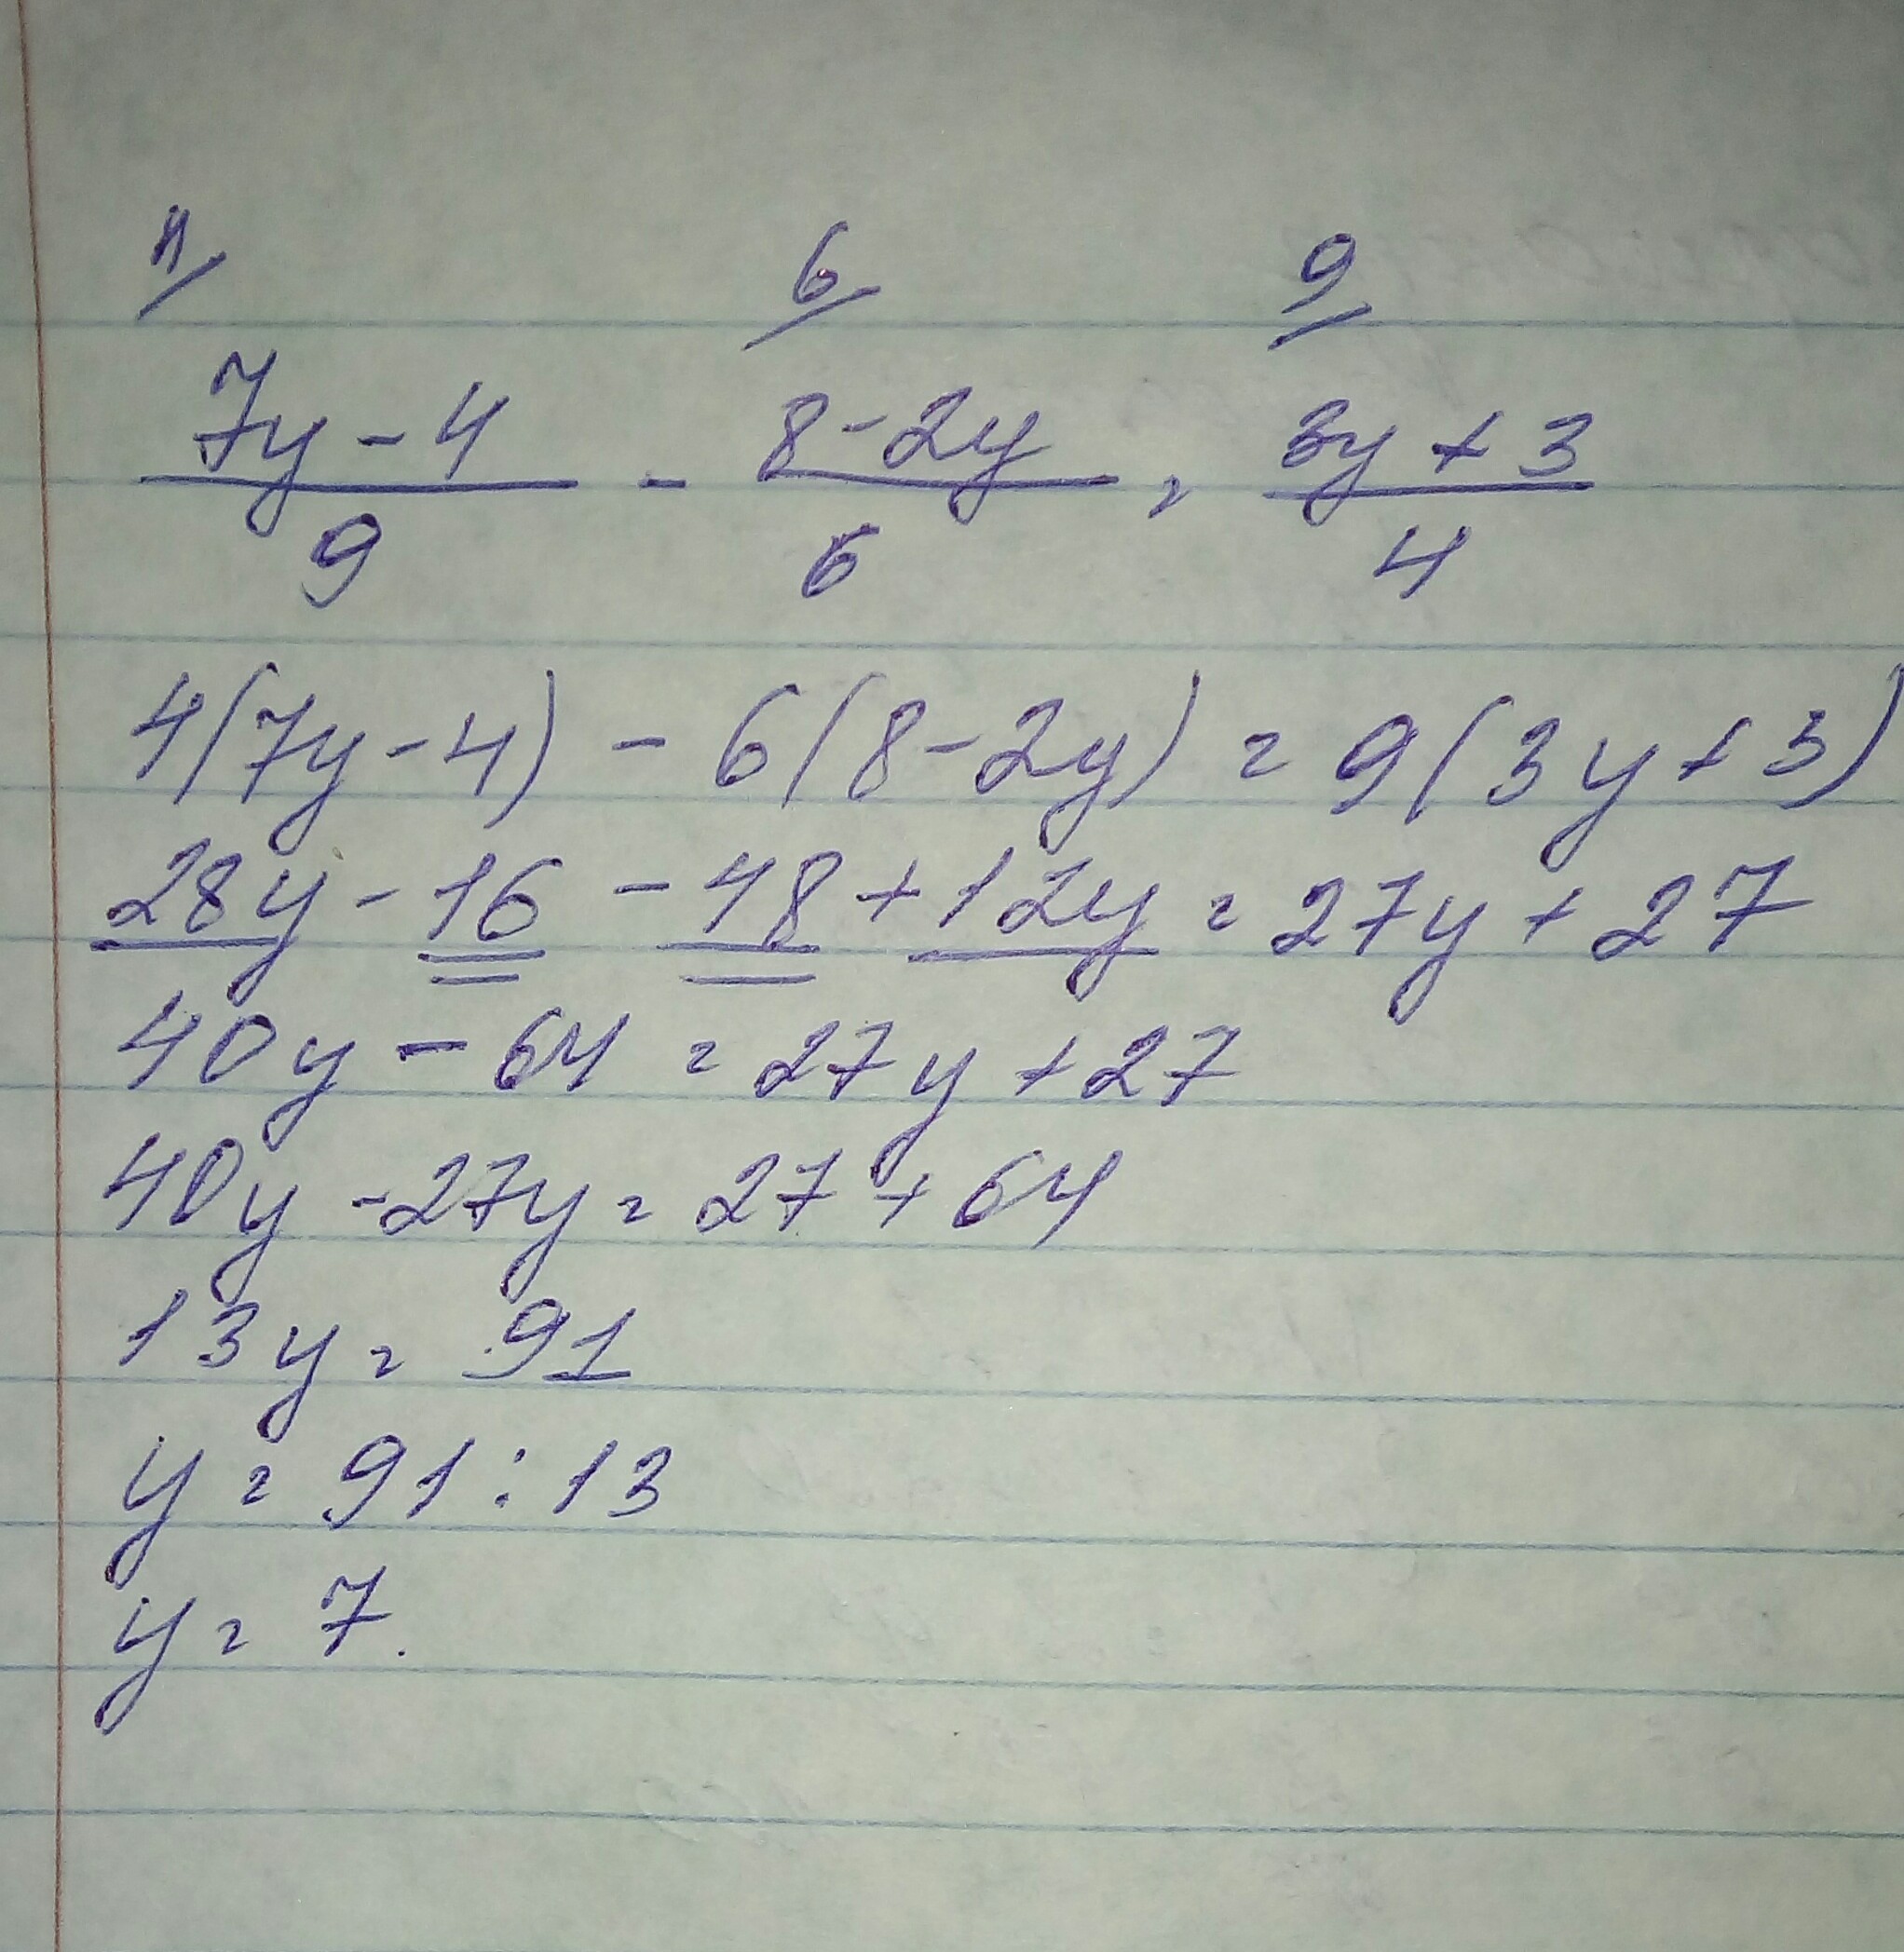 4/ 6/ 9/
7y - 4 / 9 - 8 - 2y / 6 = 3y + 3 / 4
4(7y - 4) - 6(8 - 2y) = 9(3y + 3)
28y - 16 - 48 + 12y = 27y + 27
40y - 64 = 27y + 27
40y - 27y = 27 + 64
13y = 91
y = 91 : 13
y = 7.